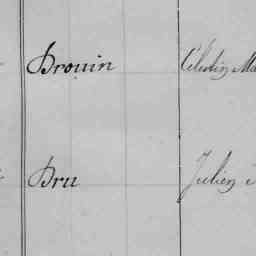 Brouin Célestin Ma
Bru Julien